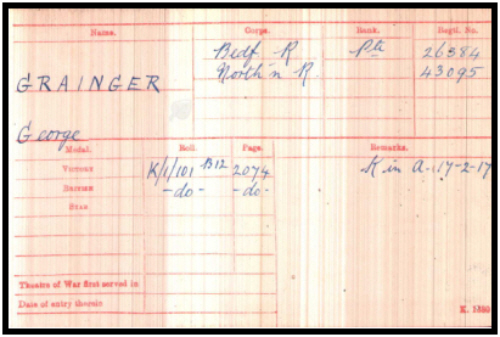 Name. Corps. Rank. Regtl. No.
Bedf. R Pte 26384
GRAINGER North'n R. 43095
George
Medal. Roll. Page. Remarks.
Victory K/1/101 B12 2074 K in A-17-2-17
British -do- -do-
Star
Theatre of War first served in
Date of entry therein
K. 1380